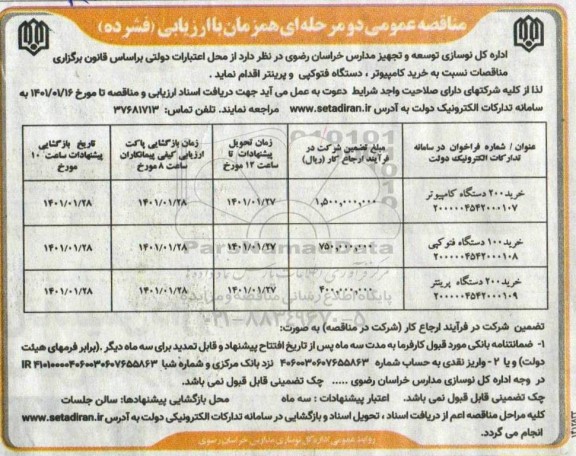 مناقصه عمومی دو مرحله ای همزمان با ارزیابی (فشرده)
اداره کل نوسازی توسعه و تجهیز مدارس خراسان رضوی در نظر دارد از محل اعتبارات دولتی براساس قانون برگزاری
مناقصات نسبت به خرید کامپیوتر ، دستگاه فتوکپی و پرینتر اقدام نماید .
لذا از کلیه شرکتهای دارای صلاحیت واجد شرایط دعوت به عمل می آید جهت دریافت اسناد ارزیابی و مناقصه تا مورخ ۱۴۰۱/۰۱/۱۶ به
سامانه تدارکات الکترونیک دولت به آدرس www.setadiran.ir مراجعه نمایند. تلفن تماس: ۳۷۶۸۱۷۱۳
عنوان / شماره فراخوان در سامانه تدارکات الکترونیک دولت | مبلغ تضمین شرکت در فرآیند ارجاع کار (ریال) | زمان تحویل پیشنهادات تا ساعت ۱۲ مورخ | زمان بازگشایی پاکت ارزیابی کیفی پیمانکاران ساعت ۸ مورخ | تاریخ بازگشایی پیشنهادات ساعت ۱۰ مورخ
خرید ۲۰۰ دستگاه کامپیوتر ۲۰۰۰۰۰۴۵۴۲۰۰۰۱۰۷ | ۱,۵۰۰,۰۰۰,۰۰۰ | ۱۴۰۱/۰۱/۲۷ | ۱۴۰۱/۰۱/۲۸ | ۱۴۰۱/۰۱/۲۸
خرید ۱۰۰ دستگاه فتوکپی ۲۰۰۰۰۰۴۵۴۲۰۰۰۱۰۸ | ۷۵۰,۰۰۰,۰۰۰ | ۱۴۰۱/۰۱/۲۷ | ۱۴۰۱/۰۱/۲۸ | ۱۴۰۱/۰۱/۲۸
خرید ۲۰۰ دستگاه پرینتر ۲۰۰۰۰۰۴۵۴۲۰۰۰۱۰۹ | ۴۰۰,۰۰۰,۰۰۰ | ۱۴۰۱/۰۱/۲۷ | ۱۴۰۱/۰۱/۲۸ | ۱۴۰۱/۰۱/۲۸
ParsNamadData
پایگاه اطلاع رسانی مناقصه و مزایده
۰۲۱-۸۸۳۴۹۶۷۰-۵
تضمین شرکت در فرآیند ارجاع کار (شرکت در مناقصه) به صورت:
۱- ضمانتنامه بانکی مورد قبول کارفرما به مدت سه ماه پس از تاریخ افتتاح پیشنهاد و قابل تمدید برای سه ماه دیگر .(برابر فرمهای هیئت
دولت) و یا ۲ - واریز نقدی به حساب شماره ۴۰۶۰۰۳۰۶۰۷۶۵۵۸۶۳ نزد بانک مرکزی و شماره شبا
در وجه اداره کل نوسازی مدارس خراسان رضوی ..... چک تضمینی قابل قبول نمی باشد.
چک تضمینی قابل قبول نمی باشد. اعتبار پیشنهادات : سه ماه محل بازگشایی پیشنهادها: سالن جلسات
کلیه مراحل مناقصه اعم از دریافت اسناد ، تحویل اسناد و بازگشایی در سامانه تدارکات الکترونیکی دولت به آدرس www.setadiran.ir
انجام می گردد.
روابط عمومی اداره کل نوسازی مدارس خراسان رضوی